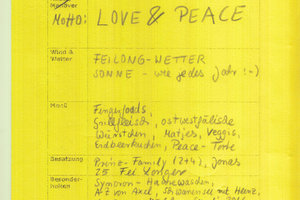 Manöver
Motto: LOVE & PEACE
Wind & Wetter
FEILONG-WETTER
SONNE - wie jedes Jahr :-)
Menü
Fingerfoods,
Grillfleisch, ostwestfälische
Würstchen, Matjes, Veggis,
Erdbeerkuchen, Peace-Torte
Besatzung
Prinz-Family (2+4), Jonas
25 Fei Longer
Besonderheiten
Axel, Schwanensel mit Heinz,